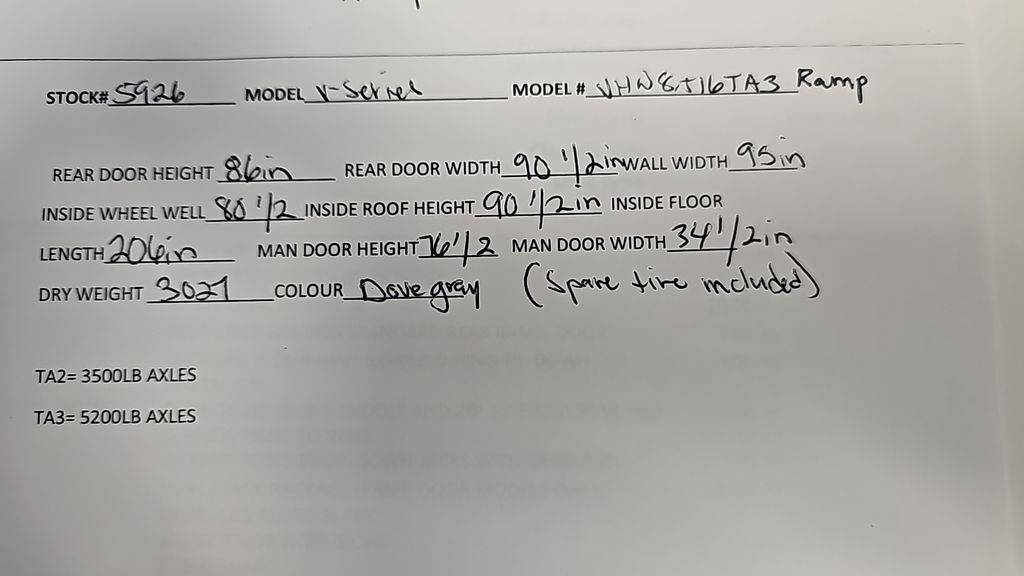 STOCK# 5926 MODEL V-Series MODEL # VHW8T16TA3 Ramp
REAR DOOR HEIGHT 86in REAR DOOR WIDTH 90 1/2in WALL WIDTH 95in
INSIDE WHEEL WELL 80 1/2 INSIDE ROOF HEIGHT 90 1/2in INSIDE FLOOR
LENGTH 206in MAN DOOR HEIGHT 76 1/2 MAN DOOR WIDTH 34 1/2in
DRY WEIGHT 3027 COLOUR Dove gray (Spare tire included)
TA2= 3500LB AXLES
TA3= 5200LB AXLES